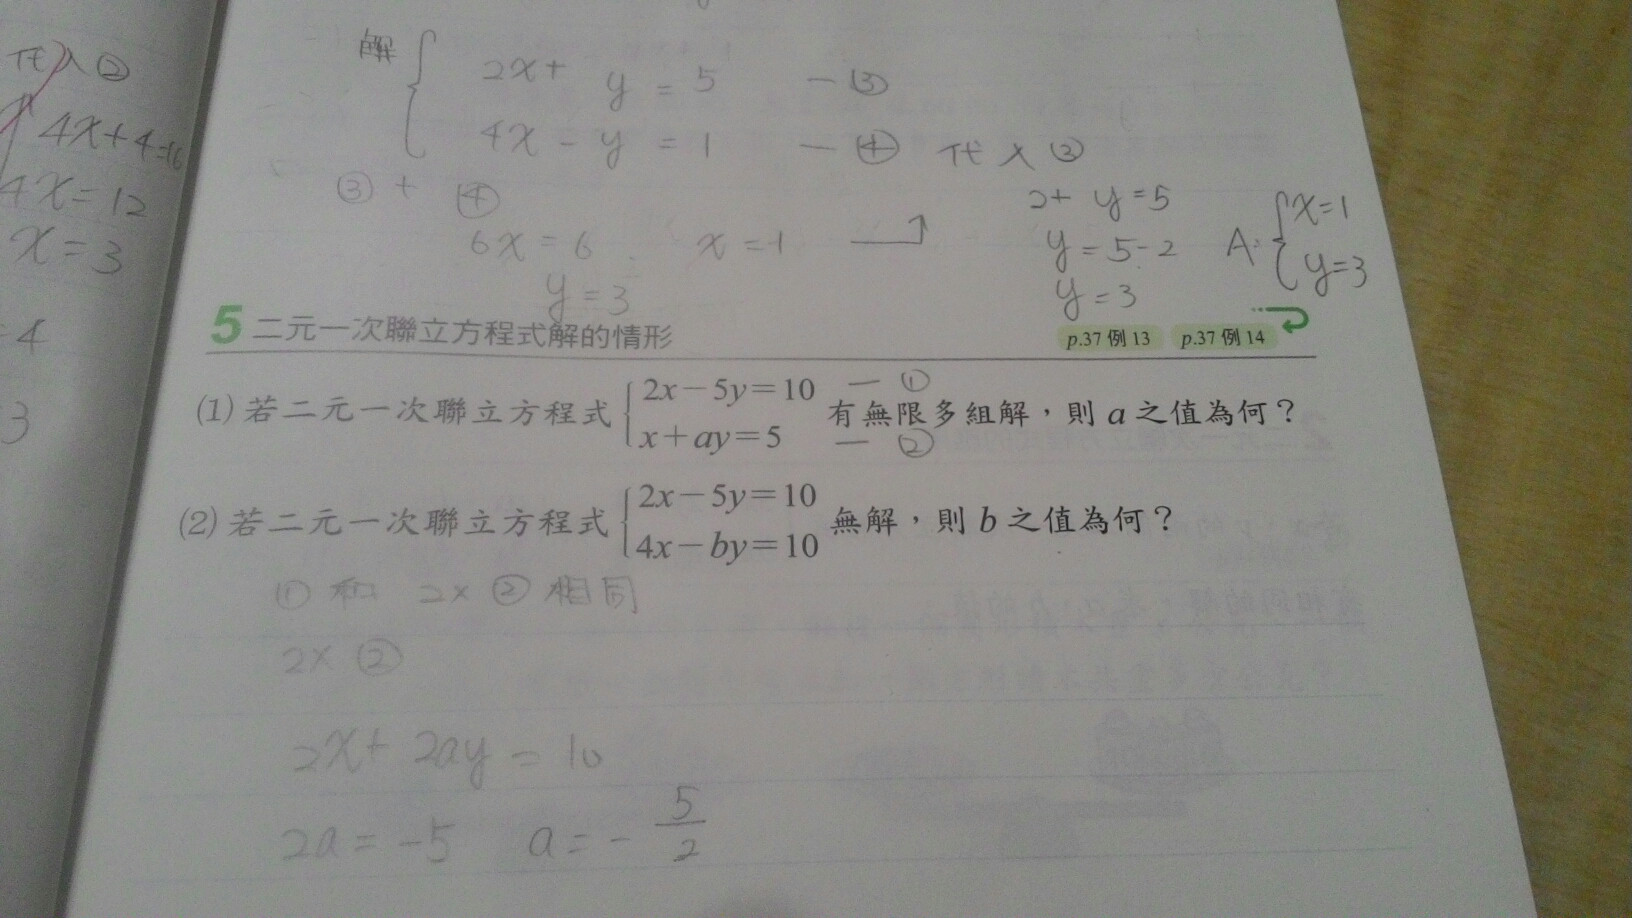 代入②
4x+4=16
4x=12
x=3
=4
3
解{2x+y=5 —③
4x-y=1 —④ 代入③
③+④
6x=6 x=1
y=3
2+y=5
y=5-2
y=3
A:{x=1
y=3
5 二元一次聯立方程式解的情形 p.37 例13 p.37 例14
(1) 若二元一次聯立方程式{2x-5y=10 —① x+ay=5 —② 有無限多組解，則 a 之值為何？
(2) 若二元一次聯立方程式{2x-5y=10 4x-by=10 無解，則 b 之值為何？
①和 2×②相同
2×②
2x+2ay=10
2a=-5 a=-5/2